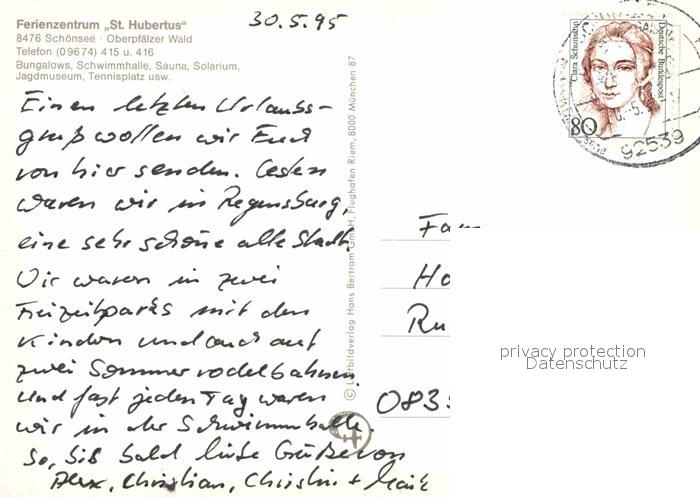 Ferienzentrum „St. Hubertus"
8476 Schönsee · Oberpfälzer Wald
Telefon (09674) 415 u. 416
Bungalows, Schwimmhalle, Sauna, Solarium,
Jagdmuseum, Tennisplatz usw.
30.5.95
Einen letzten Urlaubs-
gruß wollen wir Euch
von hier senden. Gestern
waren wir in Regensburg,
eine sehr schöne alte Stadt.
Wir waren in zwei
Freizeitparks mit den
Kindern und auch auf
zwei Sommerrodelbahnen.
Und fast jeden Tag waren
wir in der Schwimmhalle.
So, bis bald liebe Grüße von
Alex, Christian, Christin + Maik
© Luftbildverlag Hans Bertram GmbH, Flughafen Riem, 8000 München 87
Clara Schumann
Deutsche Bundespost
80
92539
Fam
Ha
Ru
0835
privacy protection
Datenschutz